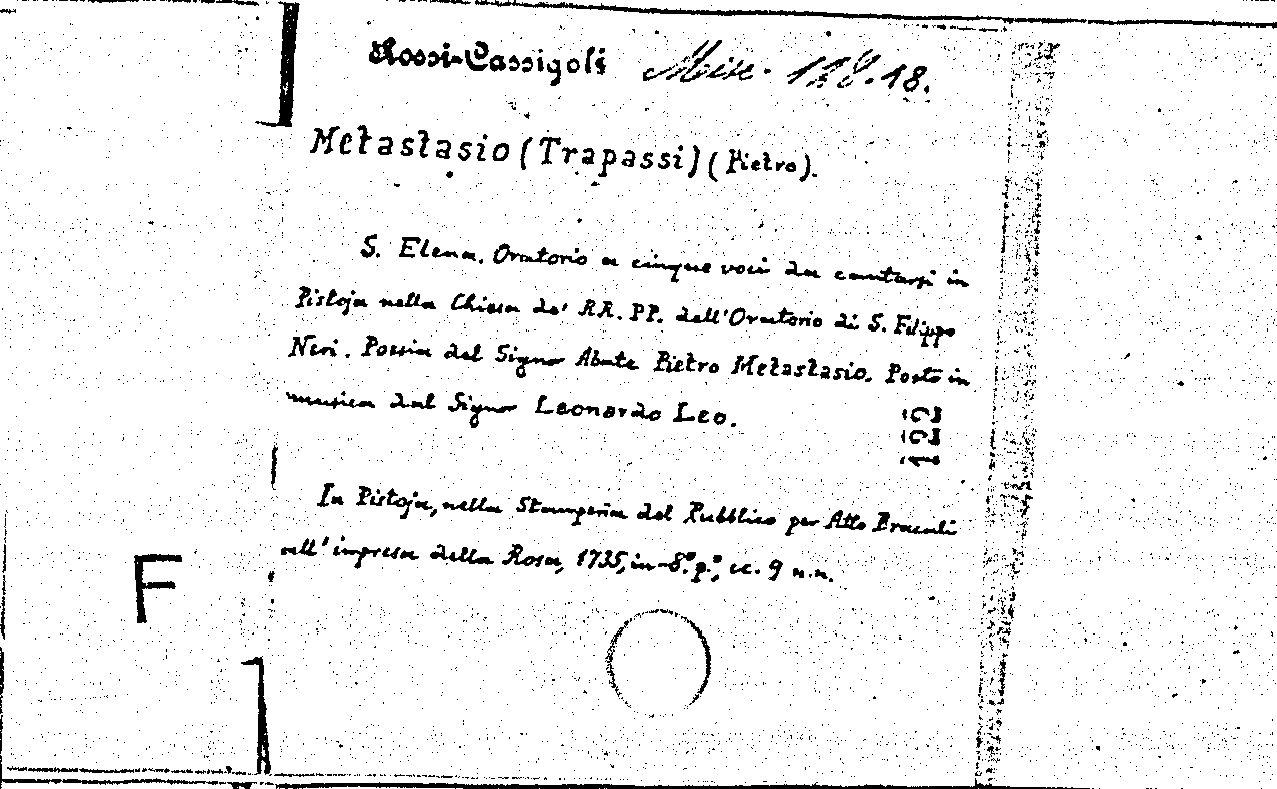 Rossi-Cassigoli Misc. 188.18.
Metastasio (Trapassi) (Pietro).
S. Elena. Oratorio a cinque voci da cantarsi in
Pistoja nella Chiesa de' RR. PP. dell'Oratorio di S. Filippo
Neri. Poesia del Signor Abate Pietro Metastasio. Posto in
musica dal Signor Leonardo Leo.
In Pistoja, nella Stamperia del Pubblico per Atto Bracali
all'impresa della Rosa, 1735, in-8.º p.º, cc. 9 n.n.
F